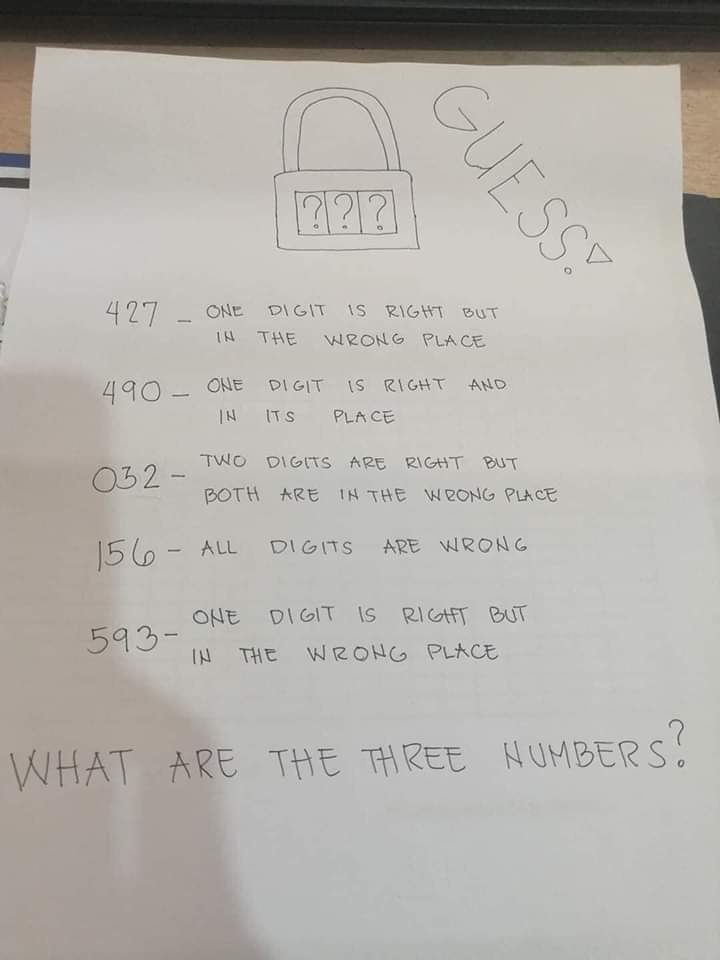 GUESS!
???
427 - ONE DIGIT IS RIGHT BUT
IN THE WRONG PLACE
490 - ONE DIGIT IS RIGHT AND
IN ITS PLACE
032 - TWO DIGITS ARE RIGHT BUT
BOTH ARE IN THE WRONG PLACE
156 - ALL DIGITS ARE WRONG
593 - ONE DIGIT IS RIGHT BUT
IN THE WRONG PLACE
WHAT ARE THE THREE NUMBERS?